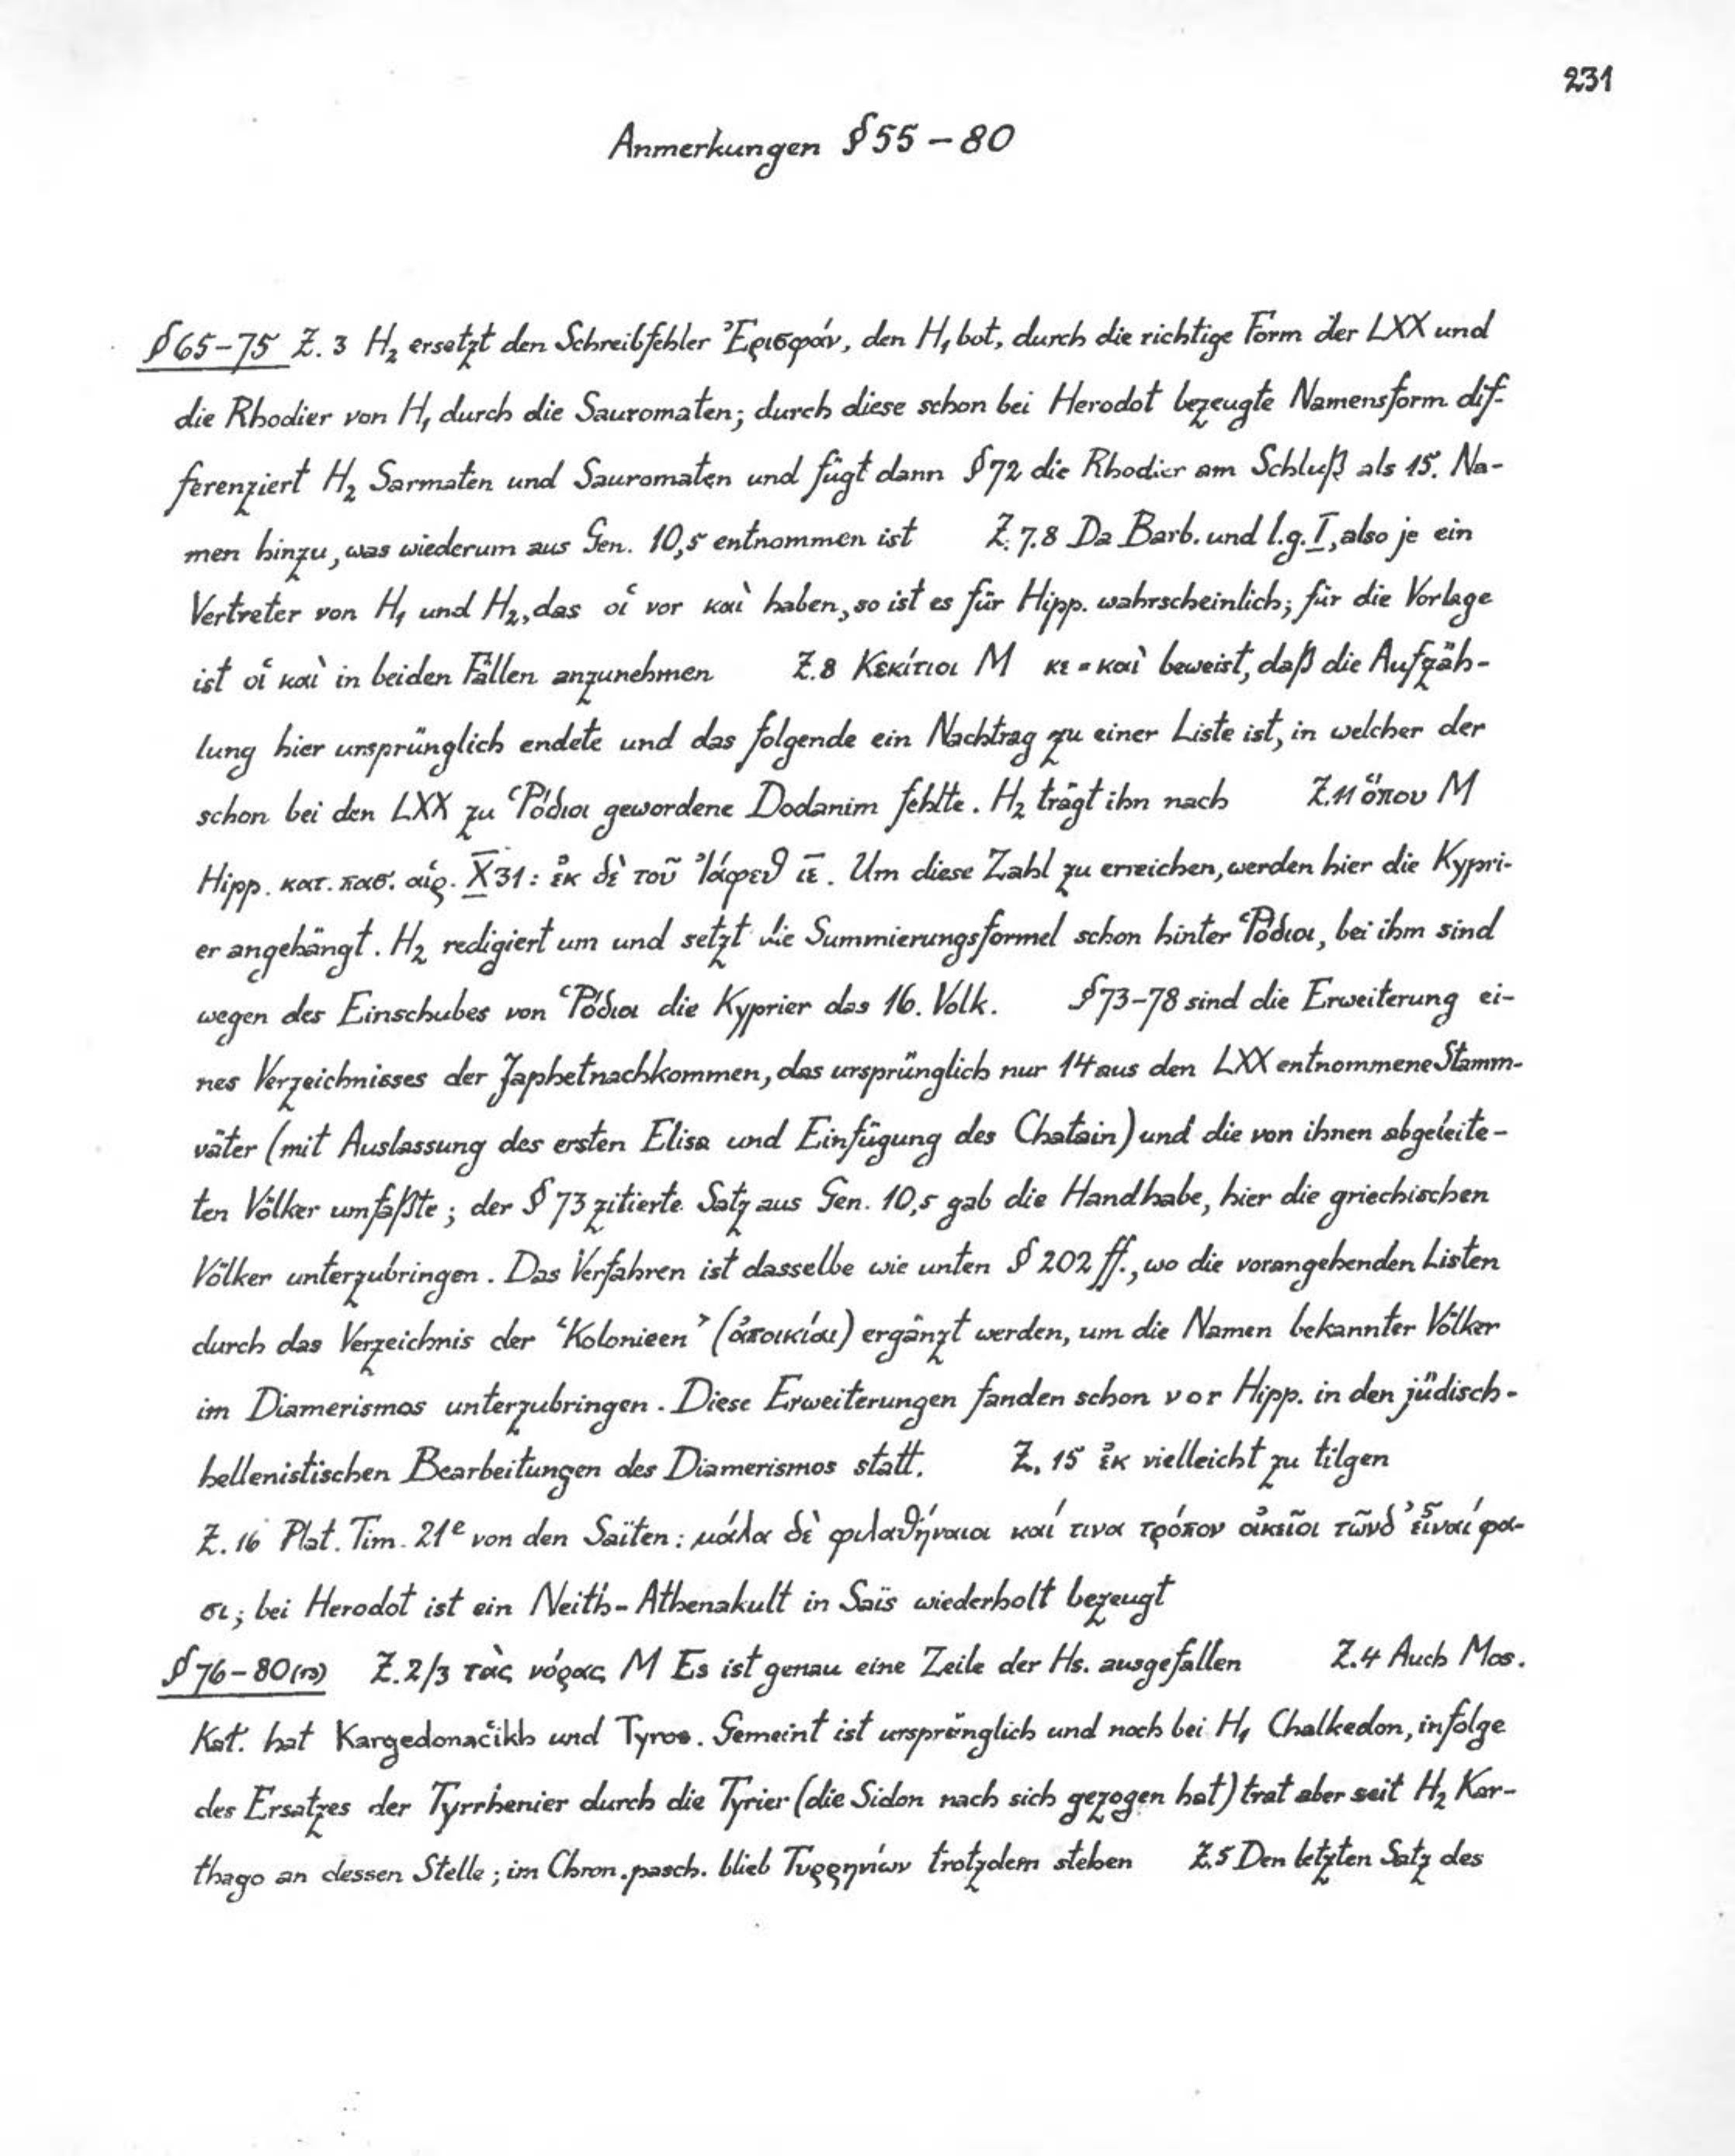 231
Anmerkungen §55 – 80
§65–75 Z. 3 H₂ ersetzt den Schreibfehler Ἐρισφάν, den H₁ bot, durch die richtige Form der LXX und
die Rhodier von H₁ durch die Sauromaten; durch diese schon bei Herodot bezeugte Namensform dif-
ferenziert H₂ Sarmaten und Sauromaten und fügt dann §72 die Rhodier am Schluß als 15. Na-
men hinzu, was wiederum aus Gen. 10,5 entnommen ist Z. 7.8 Da Barb. und l.g. I, also je ein
Vertreter von H₁ und H₂, das οἱ vor καὶ haben, so ist es für Hipp. wahrscheinlich; für die Vorlage
ist οἱ καὶ in beiden Fällen anzunehmen Z. 8 Κεκίτιοι M κε = καὶ beweist, daß die Aufzäh-
lung hier ursprünglich endete und das folgende ein Nachtrag zu einer Liste ist, in welcher der
schon bei den LXX zu Ῥόδιοι gewordene Dodanim fehlte. H₂ trägt ihn nach Z. 11 ὅπου M
Hipp. κατ. πασ. αἱρ. X 31: ἐκ δὲ τοῦ Ἰάφεθ ιε. Um diese Zahl zu erreichen, werden hier die Kypri-
er angehängt. H₂ redigiert um und setzt die Summierungsformel schon hinter Ῥόδιοι, bei ihm sind
wegen des Einschubes von Ῥόδιοι die Kyprier das 16. Volk. §73–78 sind die Erweiterung ei-
nes Verzeichnisses der Japhetnachkommen, das ursprünglich nur 14 aus den LXX entnommene Stamm-
väter (mit Auslassung des ersten Elisa und Einfügung des Chatain) und die von ihnen abgeleite-
ten Völker umfaßte; der §73 zitierte Satz aus Gen. 10,5 gab die Handhabe, hier die griechischen
Völker unterzubringen. Das Verfahren ist dasselbe wie unten §202 ff., wo die vorangehenden Listen
durch das Verzeichnis der ‘Kolonieen’ (ἀποικίαι) ergänzt werden, um die Namen bekannter Völker
im Diamerismos unterzubringen. Diese Erweiterungen fanden schon vor Hipp. in den jüdisch-
hellenistischen Bearbeitungen des Diamerismos statt. Z. 15 ἐκ vielleicht zu tilgen
Z. 16 Plat. Tim. 21ᵉ von den Saïten: μάλα δὲ φιλαθήναιοι καί τινα τρόπον οἰκεῖοι τῶνδ’ εἶναί φα-
σι; bei Herodot ist ein Neith-Athenakult in Saïs wiederholt bezeugt
§76–80 Z. 2/3 τὰς νόρας M Es ist genau eine Zeile der Hs. ausgefallen Z. 4 Auch Mos.
Kat. hat Kargedonačikh und Tyros. Gemeint ist ursprünglich und noch bei H₁ Chalkedon, infolge
des Ersatzes der Tyrrhenier durch die Tyrier (die Sidon nach sich gezogen hat) trat aber seit H₂ Kar-
thago an dessen Stelle; im Chron. pasch. blieb Τυρρηνίων trotzdem stehen Z. 5 Den letzten Satz des